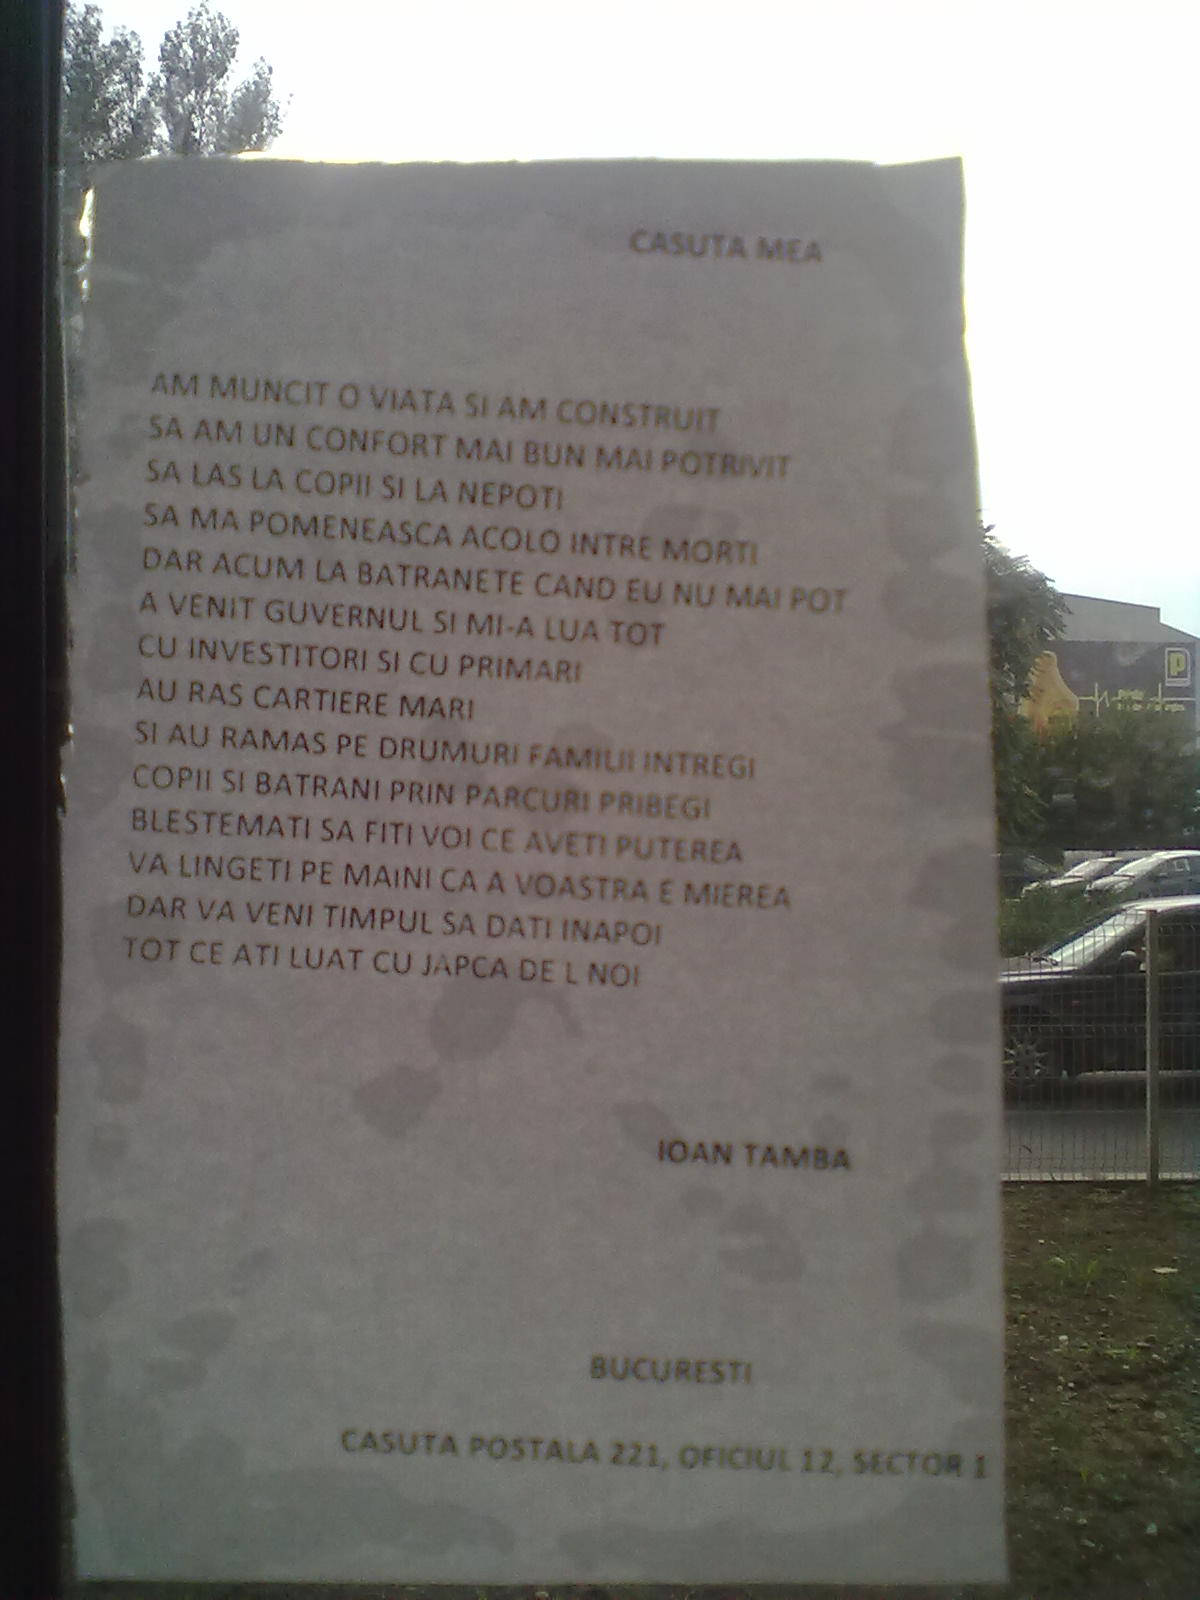 CASUTA MEA
AM MUNCIT O VIATA SI AM CONSTRUIT
SA AM UN CONFORT MAI BUN MAI POTRIVIT
SA LAS LA COPII SI LA NEPOTI
SA MA POMENEASCA ACOLO INTRE MORTI
DAR ACUM LA BATRANETE CAND EU NU MAI POT
A VENIT GUVERNUL SI MI-A LUA TOT
CU INVESTITORI SI CU PRIMARI
AU RAS CARTIERE MARI
SI AU RAMAS PE DRUMURI FAMILII INTREGI
COPII SI BATRANI PRIN PARCURI PRIBEGI
BLESTEMATI SA FITI VOI CE AVETI PUTEREA
VA LINGETI PE MAINI CA A VOASTRA E MIEREA
DAR VA VENI TIMPUL SA DATI INAPOI
TOT CE ATI LUAT CU JAPCA DE L NOI
IOAN TAMBA
BUCURESTI
CASUTA POSTALA 221, OFICIUL 12, SECTOR 1
P